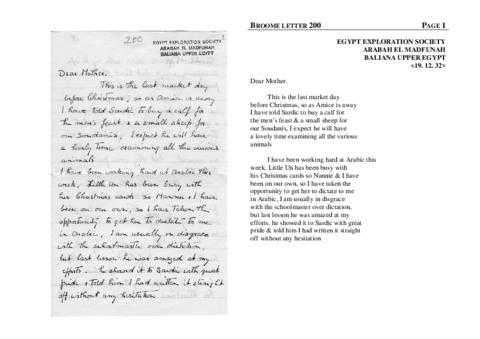 200
EGYPT EXPLORATION SOCIETY
ARABAH EL MADFUNAH
BALIANA UPPER EGYPT
Dear Mother.
This is the last market day
before Christmas, so as Amice is away
I have told Sardic to buy a calf for
the men's feast & a small sheep for
our Soudanis, I expect he will have
a lovely time examining all the various
animals
I have been working hard at Arabic this
week. Little Un has been busy with
his Christmas cards so Nannie & I have
been on our own, so I have taken the
opportunity to get her to dictate to me
in Arabic, I am usually in disgrace
with the schoolmaster over dictation,
but last lesson he was amazed at my
efforts. he showed it to Sardic with great
pride & told him I had written it straight
off without any hesitation
BROOME LETTER 200
PAGE 1
EGYPT EXPLORATION SOCIETY
ARABAH EL MADFUNAH
BALIANA UPPER EGYPT
<19. 12. 32>
Dear Mother.
This is the last market day
before Christmas, so as Amice is away
I have told Sardic to buy a calf for
the men's feast & a small sheep for
our Soudani's, I expect he will have
a lovely time examining all the various
animals
I have been working hard at Arabic this
week. Little Un has been busy with
his Christmas cards so Nannie & I have
been on our own, so I have taken the
opportunity to get her to dictate to me
in Arabic, I am usually in disgrace
with the schoolmaster over dictation,
but last lesson he was amazed at my
efforts, he showed it to Sardic with great
pride & told him I had written it straight
off without any hesitation